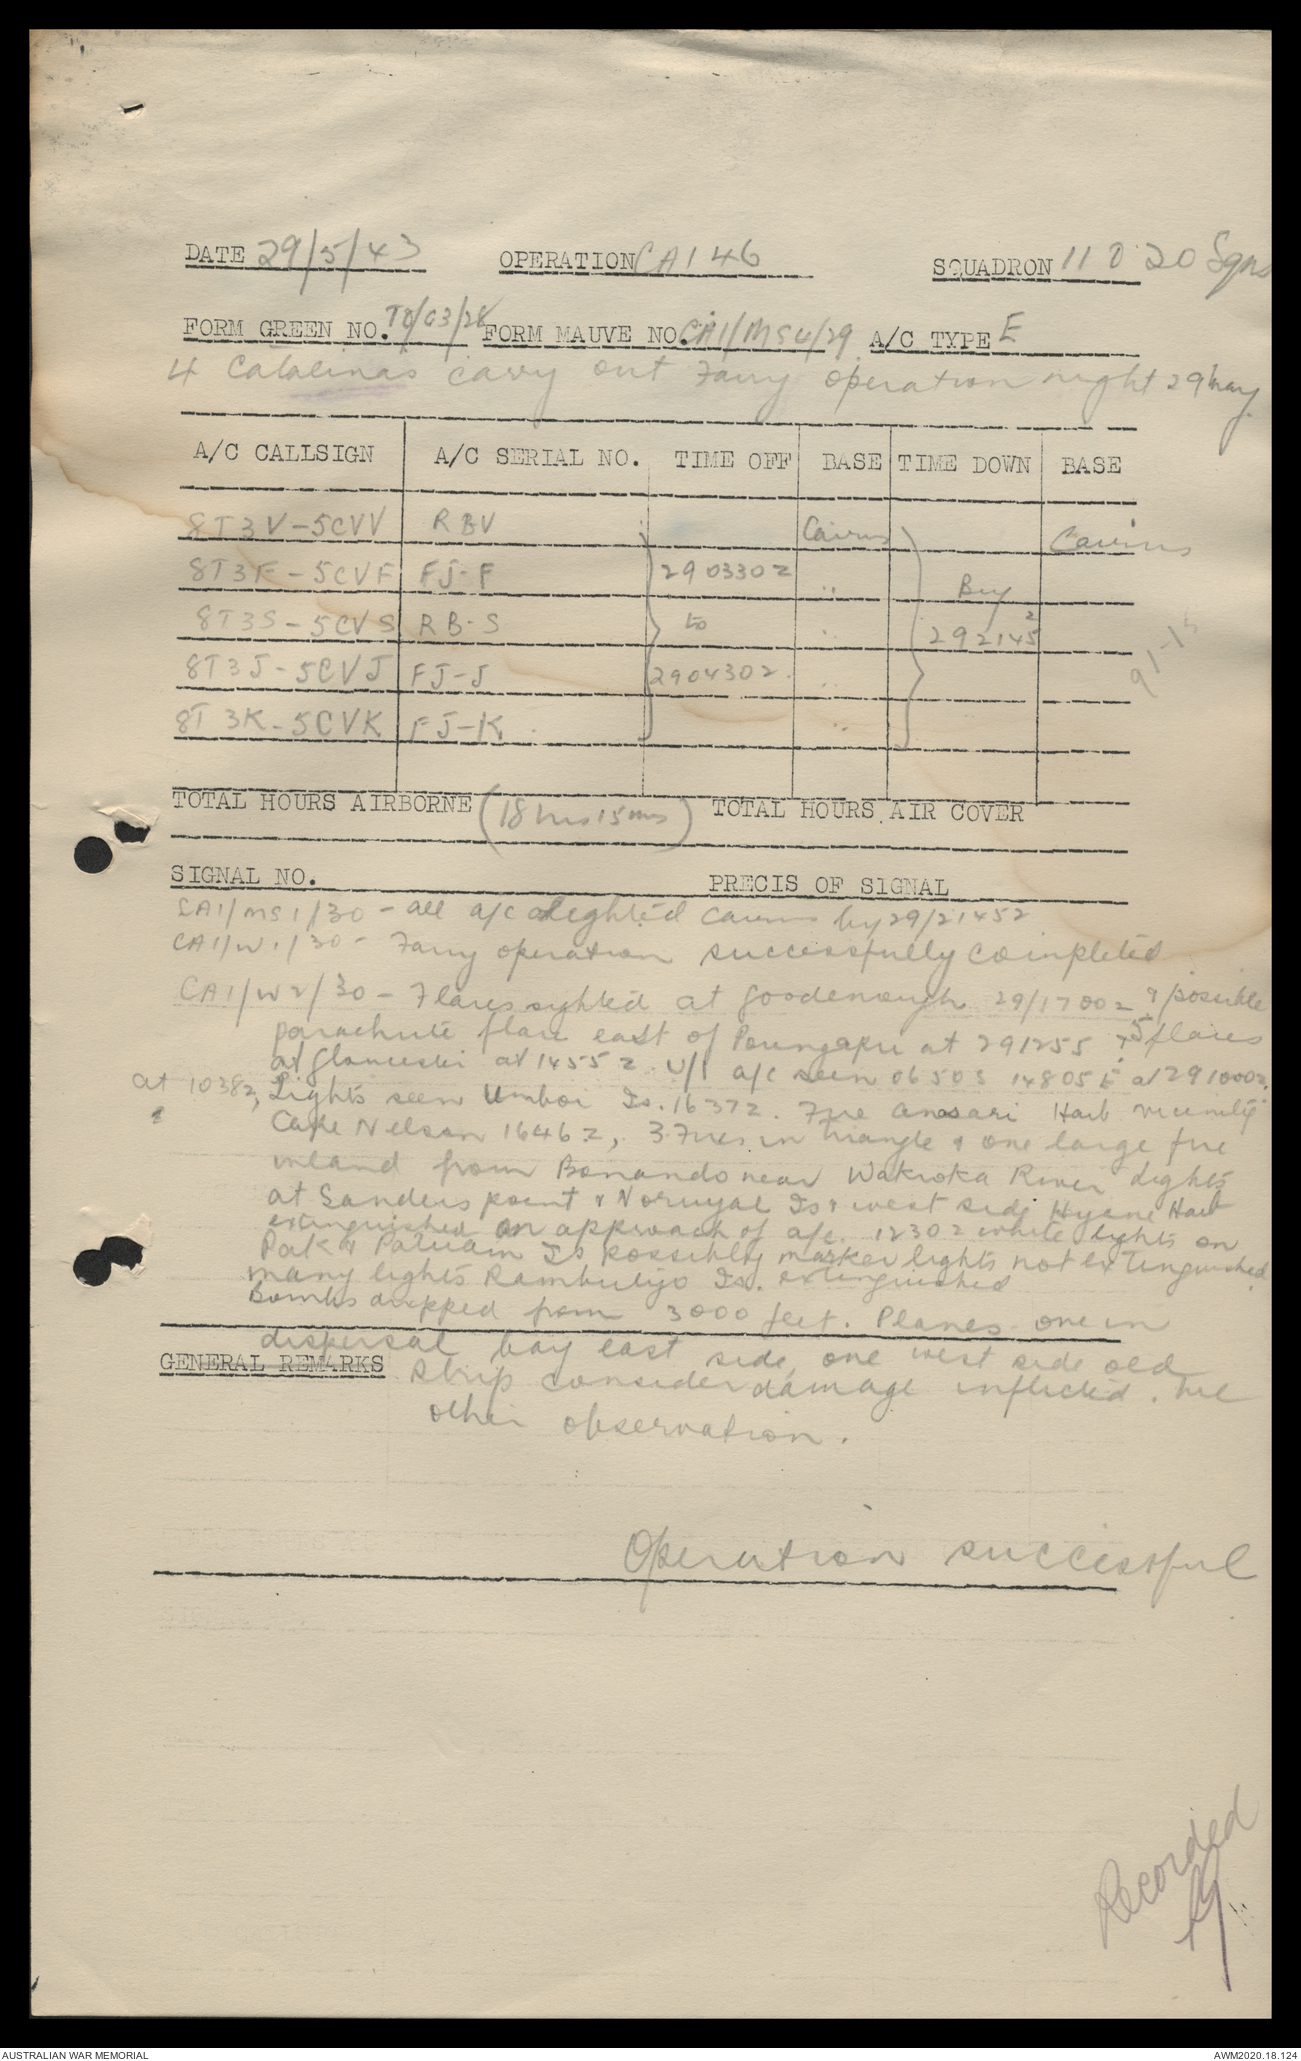 DATE 29/5/43 OPERATION CA146 SQUADRON 11 & 20 Sqns
FORM GREEN NO. T8/G3/28 FORM MAUVE NO. CA1/MS4/29 A/C TYPE E
4 Catalinas carry out Ferry operation night 29 May.
A/C CALLSIGN A/C SERIAL NO. TIME OFF BASE TIME DOWN BASE
8T3V-5CVV RBV Cairns Cairns
8T3F-5CVF FJ-F 290330Z " By
8T3S-5CVS RB-S to " 292145Z
8T3J-5CVJ FJ-J 290430Z. "
8T3K-5CVK FJ-K "
91-15
TOTAL HOURS AIRBORNE (18 hrs 15 mns) TOTAL HOURS AIR COVER
SIGNAL NO. PRECIS OF SIGNAL
CA1/MS1/30 - all a/c alighted Cairns by 29/2145Z
CA1/W1/30 - Ferry operation successfully completed
CA1/W2/30 - Flares sighted at Goodenough 29/1700Z & possible
parachute flare east of at 291255 & 5 flares
at at 1455Z. U/I a/c seen 0650S 14805E at 291000Z.
at 1038Z, Lights seen Umboi Is. 1637Z. Fire Harb vicinity
Cape Nelson 1646Z, 3 Fires in triangle & one large fire
inland from near River Lights
at Sanders point & Is & west side Hyane Harb
extinguished on approach of a/c. 1230Z white lights on
Pak & Is possibly marker lights not extinguished.
many lights Rambutyo Is. extinguished
Bombs dropped from 3000 feet. Planes one in
dispersal bay east side, one west side old
GENERAL REMARKS strip consider damage inflicted. Nil
other observation.
Operation successful
Recorded
AUSTRALIAN WAR MEMORIAL AWM2020.18.124